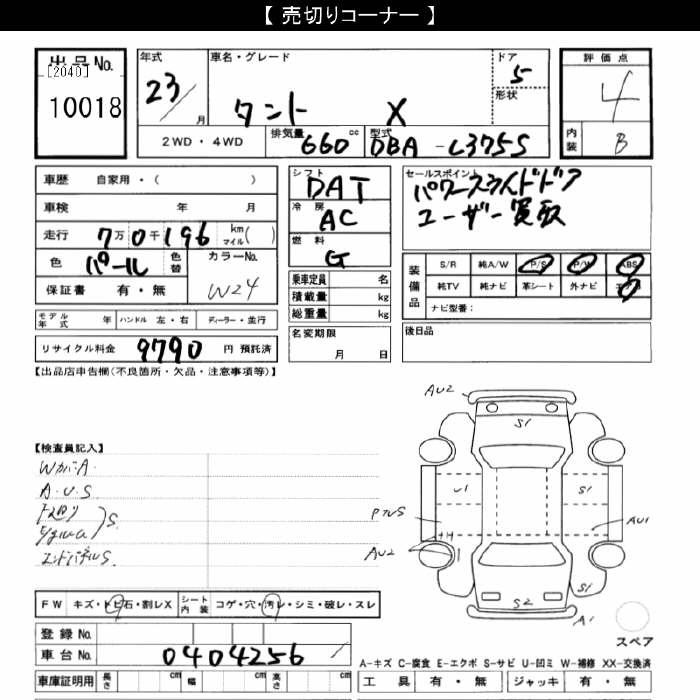 【 売切りコーナー 】
出品No.
[2040]
10018
年式
23/
月
車名・グレード
タント X
ドア
5
形状
評価点
4
内装
B
2WD・4WD
排気量
660 cc
型式
DBA-L375S
車歴 自家用・( )
車検 年 月
走行 7万0千196 km マイル( )
色 パール 色替
カラーNo.
W24
保証書 有・無
シフト
DAT
冷房
AC
燃料
G
乗車定員 名
積載量 kg
総重量 kg
セールスポイント
パワースライドドア
ユーザー買取
装備品
S/R 純A/W P/S P/W ABS
純TV 純ナビ 革シート 外ナビ エアB
ナビ型番:
モデル年式 年 ハンドル 左・右 ディーラー・並行
リサイクル料金 9790 円 預託済
名変期限
月 日
後日品
【出品店申告欄(不良箇所・欠品・注意事項等)】
【検査員記入】
A・U・S
エンドパネルS
AU2
S1
U1
S1
PTUS
AU1
AU2
S1
S2
A1
スペア
FW キズ・トビ石・割レX
シート内装 コゲ・穴・汚レ・シミ・破レ・スレ
登録No.
車台No. 0404256
A-キズ C-腐食 E-エクボ S-サビ U-凹ミ W-補修 XX-交換済
車庫証明用 長さ cm 幅 cm 高さ cm
工具 有・無 ジャッキ 有・無